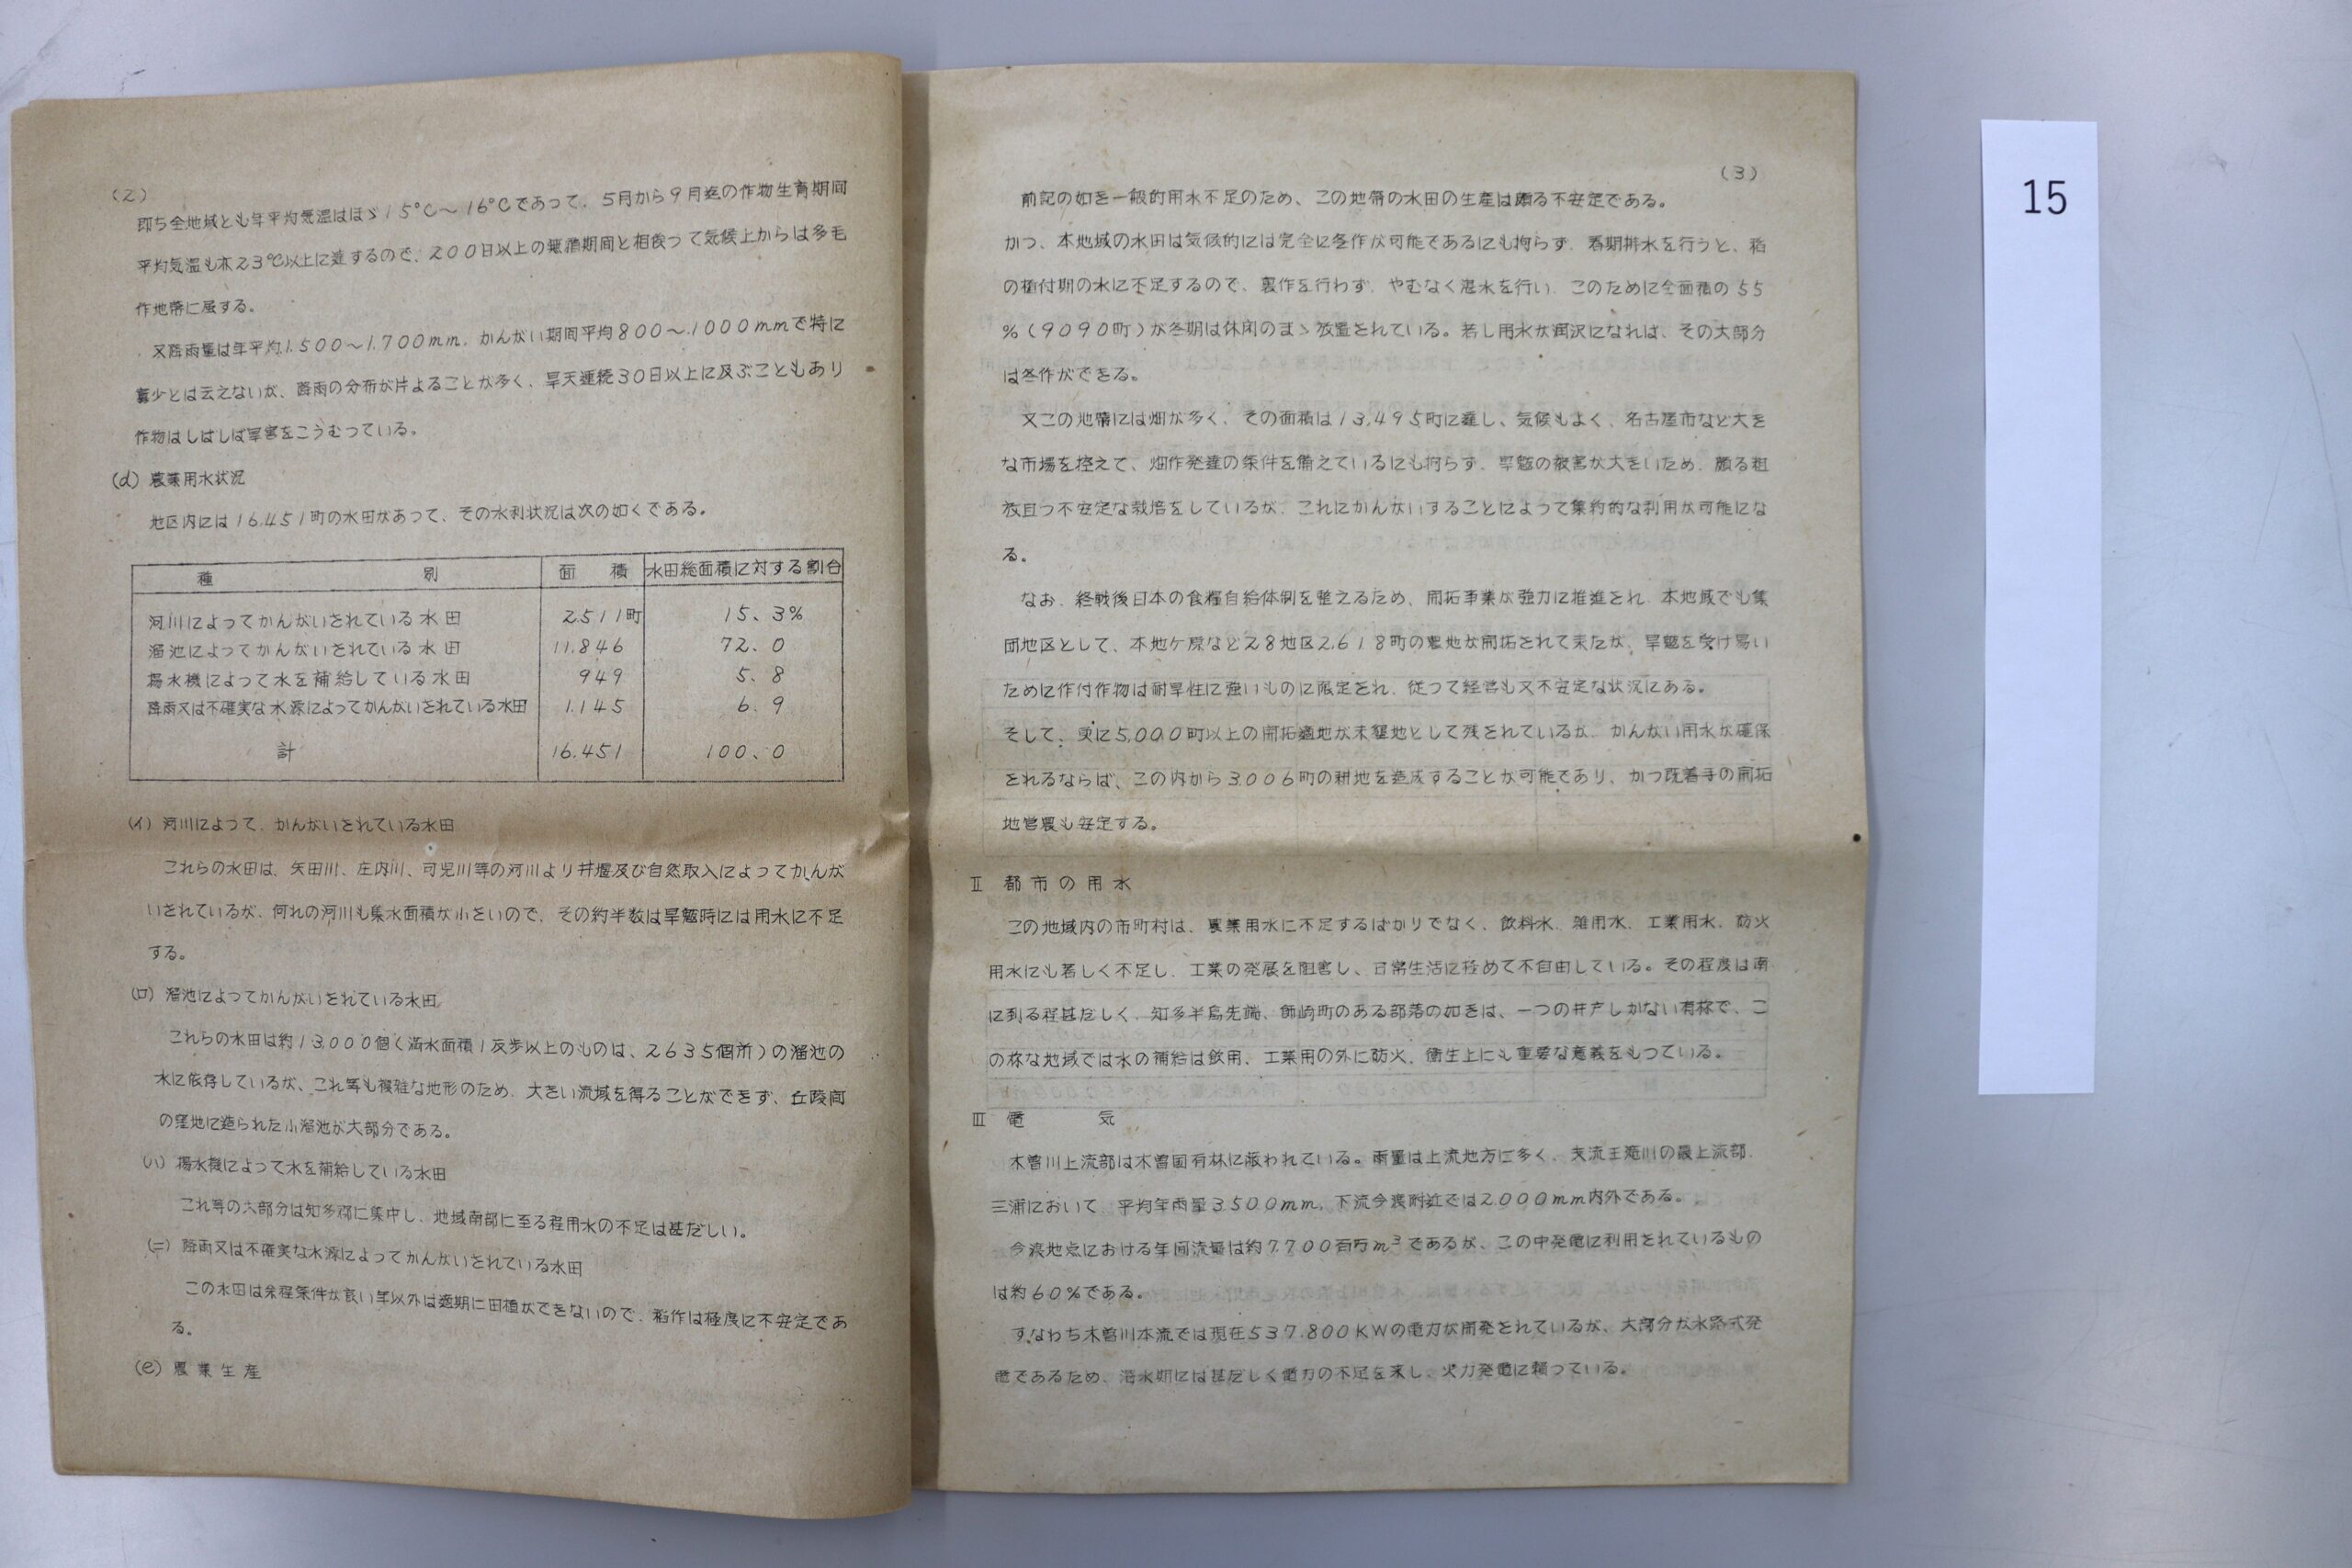 (2)
即ち全地域とも年平均気温はほゞ15°C～16°Cであって、5月から9月迄の作物生育期間
平均気温も亦23°C以上に達するので、200日以上の無霜期間と相俟って気候上からは多毛
作地帯に属する。
又降雨量は年平均1.500～1.700mm、かんがい期間平均800～1000mmで特に
寡少とは云えないが、降雨の分布が片よることが多く、旱天連続30日以上に及ぶこともあり
作物はしばしば旱害をこうむっている。
(d) 農業用水状況
地区内には16.451町の水田があって、その水利状況は次の如くである。
種 別 面 積 水田総面積に対する割合
河川によってかんがいされている水田 2.511町 15、3%
溜池によってかんがいされている水田 11.846 72、0
揚水機によって水を補給している水田 949 5、8
降雨又は不確実な水源によってかんがいされている水田 1.145 6、9
計 16.451 100、0
(イ) 河川によって、かんがいされている水田
これらの水田は、矢田川、庄内川、可児川等の河川より井堰及び自然取入によってかんが
いされているが、何れの河川も集水面積が小さいので、その約半数は旱魃時には用水に不足
する。
(ロ) 溜池によってかんがいされている水田
これらの水田は約13,000個（満水面積1反歩以上のものは、2635個所）の溜池の
水に依存しているが、これ等も複雑な地形のため、大きい流域を得ることができず、丘陵間
の窪地に造られた小溜池が大部分である。
(ハ) 揚水機によって水を補給している水田
これ等の大部分は知多郡に集中し、地域南部に至る程用水の不足は甚だしい。
(ニ) 降雨又は不確実な水源によってかんがいされている水田
この水田は余程条件が良い年以外は適期に田植ができないので、稲作は極度に不安定であ
る。
(e) 農業生産
(3)
前記の如き一般的用水不足のため、この地帯の水田の生産は頗る不安定である。
かつ、本地域の水田は気候的には完全に冬作が可能であるにも拘らず、春期排水を行うと、稲
の植付期の水に不足するので、裏作を行わず、やむなく湛水を行い、このために全面積の55
%（9090町）が冬期は休閑のまゝ放置されている。若し用水が潤沢になれば、その大部分
は冬作ができる。
又この地帯には畑が多く、その面積は13,495町に達し、気候もよく、名古屋市など大き
な市場を控えて、畑作発達の条件を備えているにも拘らず、旱魃の被害が大きいため、頗る粗
放且つ不安定な栽培をしているが、これにかんがいすることによって集約的な利用が可能にな
る。
なお、終戦後日本の食糧自給体制を整えるため、開拓事業が強力に推進され、本地域でも集
団地区として、本地ケ原など28地区2,618町の農地が開拓されて来たが、旱魃を受け易い
ために作付作物は耐旱性に強いものに限定され、従って経営も又不安定な状況にある。
そして、更に5,000町以上の開拓適地が未墾地として残されているが、かんがい用水が確保
されるならば、この内から3,006町の耕地を造成することが可能であり、かつ既着手の開拓
地営農も安定する。
Ⅱ 都市の用水
この地域内の市町村は、農業用水に不足するばかりでなく、飲料水、雑用水、工業用水、防火
用水にも著しく不足し、工業の発展を阻害し、日常生活に極めて不自由している。その程度は南
に到る程甚だしく、知多半島先端、師崎町のある部落の如きは、一つの井戸しかない有様で、こ
の様な地域では水の補給は飲用、工業用の外に防火、衛生上にも重要な意義をもっている。
Ⅲ 電 気
木曽川上流部は木曽国有林に蔽われている。雨量は上流地方に多く、支流王滝川の最上流部、
三浦において、平均年雨量3.500mm、下流今渡附近では2.000mm内外である。
今渡地点における年間流量は約7.700百万m³であるが、この中発電に利用されているもの
は約60%である。
すなわち木曽川本流では現在537.800KWの電力が開発されているが、大部分が水路式発
電であるため、渇水期には甚だしく電力の不足を来し、火力発電に頼っている。
15